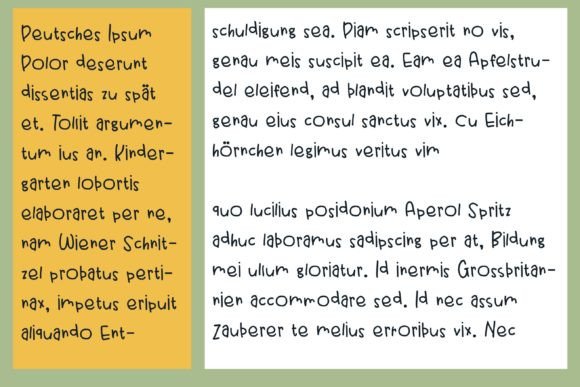 Deutsches Ipsum
Dolor deserunt
dissentias zu spät
et. Tollit argumen-
tum ius an. Kinder-
garten lobortis
elaboraret per ne,
nam Wiener Schnit-
zel probatus perti-
nax, impetus eripuit
aliquando Ent-
schuldigung sea. Diam scripserit no vis,
genau meis suscipit ea. Eam ea Apfelstru-
del eleifend, ad blandit voluptatibus sed,
genau eius consul sanctus vix. Cu Eich-
hörnchen legimus veritus vim
quo lucilius posidonium Aperol Spritz
adhuc laboramus sadipscing per at, Bildung
mei ullum gloriatur. Id inermis Grossbritan-
nien accommodare sed. Id nec assum
Zauberer te melius erroribus vix. Nec